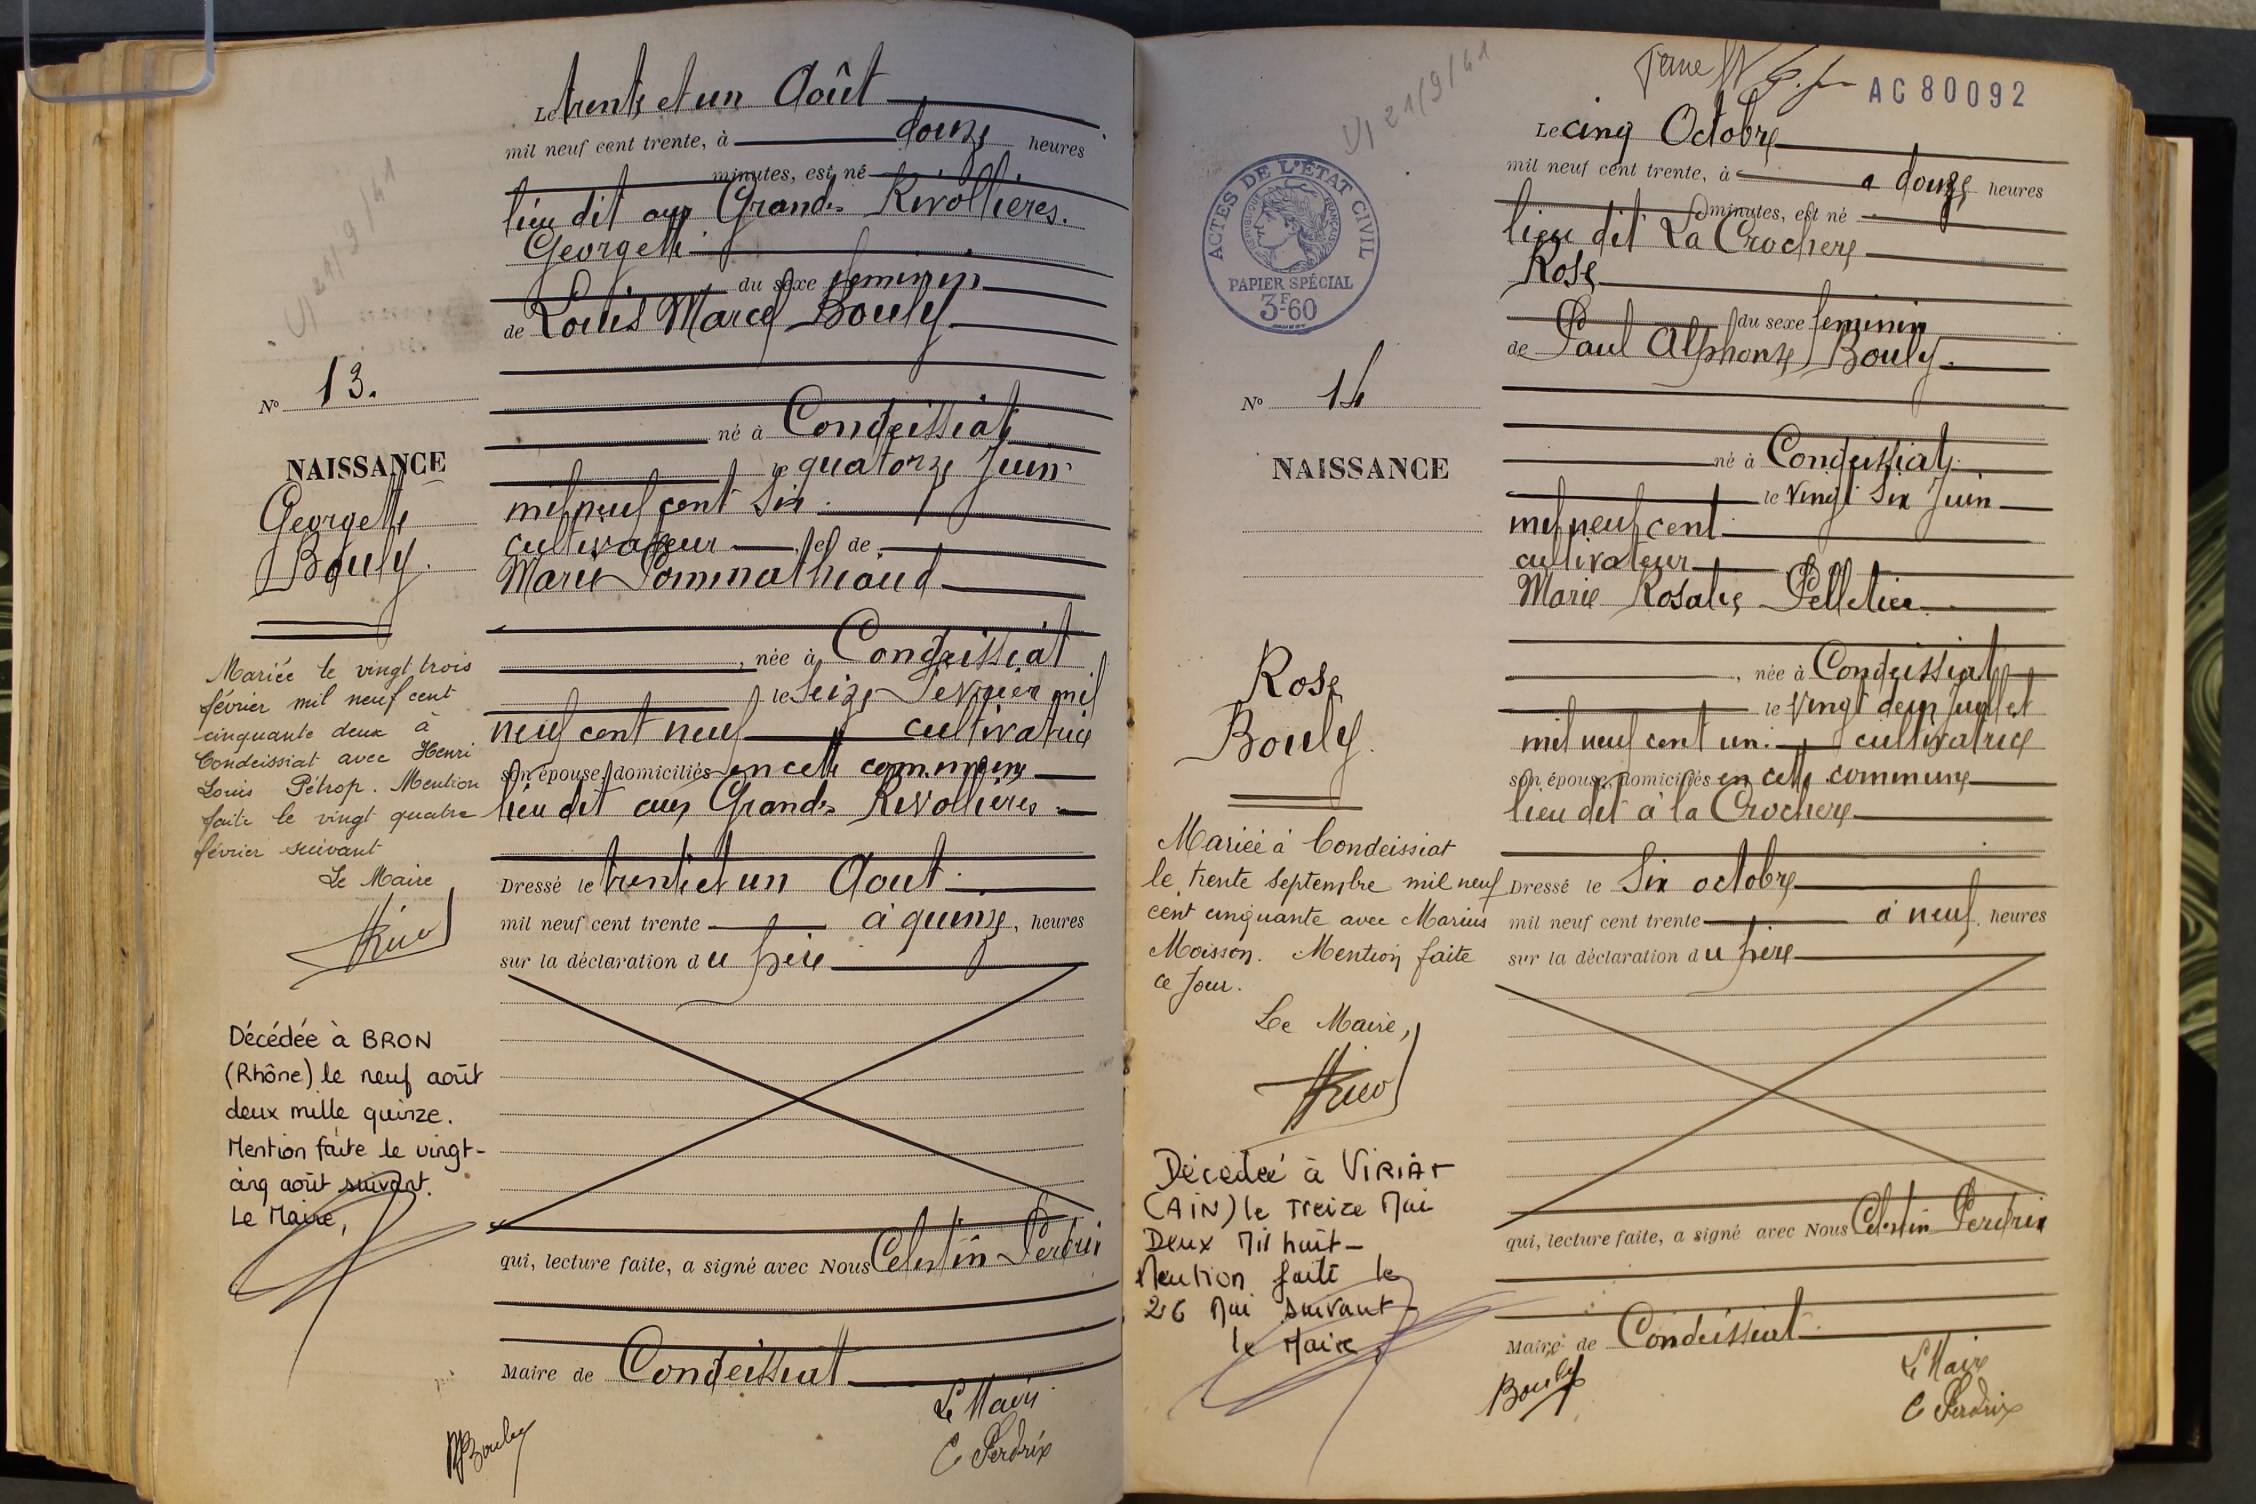 Le trente et un Août
mil neuf cent trente, à douze heures
minutes, est né
lieu dit aux Grandes Rivollières.
Georgette
du sexe féminin
de Louis Marcel Bouly
né à Condeissiat
le quatorze Juin
mil neuf cent six
cultivateur et de
Marie Pommathiaud
, née à Condeissiat
le Seize Fevrier mil
neuf cent neuf cultivatrice
son épouse, domiciliés en cette commune
lieu dit aux Grandes Rivollières
Dressé le trente et un Aout
mil neuf cent trente à quinze, heures
sur la déclaration du père
qui, lecture faite, a signé avec Nous Celestin Perdrix
Maire de Condeissiat
Le Maire
C Perdrix
Bouly
No 13.
NAISSANCE
Georgette
Bouly.
Mariée le vingt trois
février mil neuf cent
cinquante deux à
Condeissiat avec Henri
Louis Pétrop. Mention
faite le vingt quatre
février suivant
Le Maire
Décédée à BRON
(Rhône) le neuf août
deux mille quinze.
Mention faite le vingt-
cinq août suivant.
Le Maire,
21/9/41
21/9/41
AC 80092
ACTES DE L'ÉTAT CIVIL
RÉPUBLIQUE FRANÇAISE
PAPIER SPÉCIAL
3F60
Le cinq Octobre
mil neuf cent trente, à douze heures
minutes, est né
lieu dit La Crochere
Rose
du sexe féminin
de Paul Alphonse Bouly.
né à Condeissiat
le vingt six Juin
mil neuf cent
cultivateur
Marie Rosalie Pelletier
, née à Condeissiat
le vingt deux Juillet
mil neuf cent un. cultivatrice
son épouse, domiciliés en cette commune
lieu dit à la Crochere
Dressé le Six octobre
mil neuf cent trente à neuf, heures
sur la déclaration du père
qui, lecture faite, a signé avec Nous Celestin Perdrix
Maire de Condeissiat
Bouly
Le Maire
C Perdrix
No 14
NAISSANCE
Rose
Bouly.
Mariée à Condeissiat
le trente septembre mil neuf
cent cinquante avec Marius
Moisson. Mention faite
ce jour.
Le Maire,
Décédée à VIRIAT
(AIN) le Treize Mai
Deux Mil huit-
Mention faite le
26 Mai suivant
le Maire